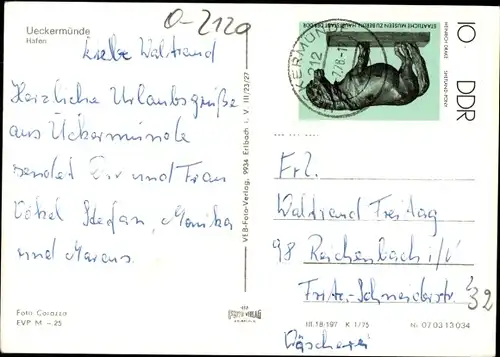 Ueckermünde
Hafen
O-2120
Liebe Waltraud
Herzliche Urlaubsgrüße
aus Ückermünde
sendet Dir und Frau
Stefan, Monika
und Marcus.
Foto Corazza
EVP M –25
VEB-Foto-Verlag, 9934 Erlbach i. V. III/23/27
FOTO-VERLAG
ERLBACH
STAATLICHE MUSEEN ZU BERLIN HAUPTSTADT DER DDR
HEINRICH DRAKE
SHETLAND-PONY
10 DDR
212
Frl.
Waltraud Freitag
98 Reichenbach i/V
Fritz-Schneiderstr 32
Wäscherei
III.18.197 K 1/75 Nr. 07 03 13 034